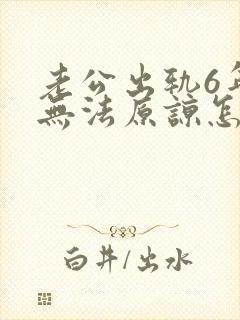 老公出軌6年
無法原諒怎
白井/出水